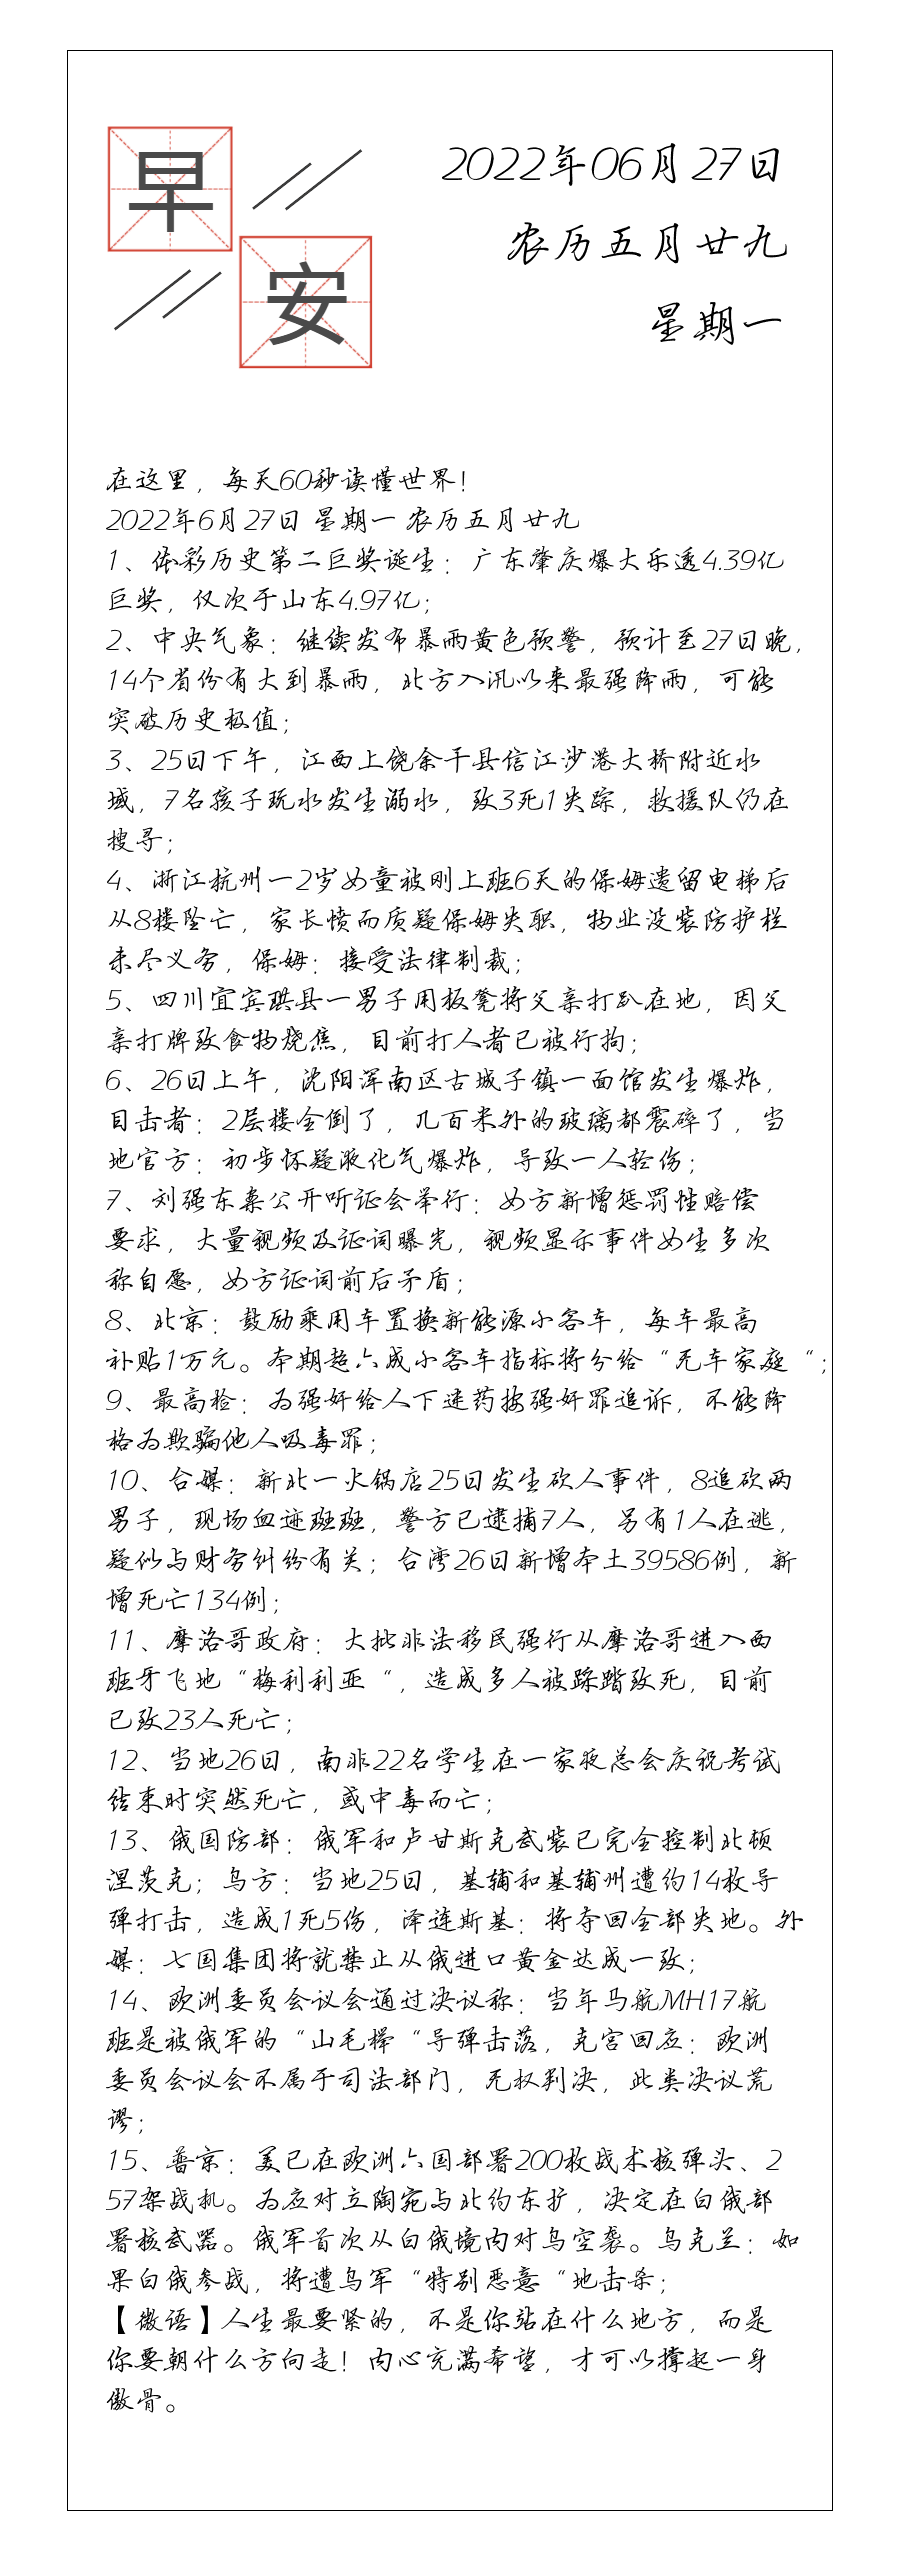 早
安
2022年06月27日
农历五月廿九
星期一
在这里，每天60秒读懂世界！
2022年6月27日 星期一 农历五月廿九
1、体彩历史第二巨奖诞生：广东肇庆爆大乐透4.39亿
巨奖，仅次于山东4.97亿；
2、中央气象：继续发布暴雨黄色预警，预计至27日晚，
14个省份有大到暴雨，北方入汛以来最强降雨，可能
突破历史极值；
3、25日下午，江西上饶余干县信江沙港大桥附近水
域，7名孩子玩水发生溺水，致3死1失踪，救援队仍在
搜寻；
4、浙江杭州一2岁女童被刚上班6天的保姆遗留电梯后
从8楼坠亡，家长愤而质疑保姆失职，物业没装防护栏
未尽义务，保姆：接受法律制裁；
5、四川宜宾珙县一男子用板凳将父亲打趴在地，因父
亲打牌致食物烧焦，目前打人者已被行拘；
6、26日上午，沈阳浑南区古城子镇一面馆发生爆炸，
目击者：2层楼全倒了，几百米外的玻璃都震碎了，当
地官方：初步怀疑液化气爆炸，导致一人轻伤；
7、刘强东案公开听证会举行：女方新增惩罚性赔偿
要求，大量视频及证词曝光，视频显示事件女生多次
称自愿，女方证词前后矛盾；
8、北京：鼓励乘用车置换新能源小客车，每车最高
补贴1万元。本期超六成小客车指标将分给“无车家庭“；
9、最高检：为强奸给人下迷药按强奸罪追诉，不能降
格为欺骗他人吸毒罪；
10、台媒：新北一火锅店25日发生砍人事件，8追砍两
男子，现场血迹斑斑，警方已逮捕7人，另有1人在逃，
疑似与财务纠纷有关；台湾26日新增本土39586例，新
增死亡134例；
11、摩洛哥政府：大批非法移民强行从摩洛哥进入西
班牙飞地“梅利利亚“，造成多人被踩踏致死，目前
已致23人死亡；
12、当地26日，南非22名学生在一家夜总会庆祝考试
结束时突然死亡，或中毒而亡；
13、俄国防部：俄军和卢甘斯克武装已完全控制北顿
涅茨克；乌方：当地25日，基辅和基辅州遭约14枚导
弹打击，造成1死5伤，泽连斯基：将夺回全部失地。外
媒：七国集团将就禁止从俄进口黄金达成一致；
14、欧洲委员会议会通过决议称：当年马航MH17航
班是被俄军的“山毛榉“导弹击落，克宫回应：欧洲
委员会议会不属于司法部门，无权判决，此类决议荒
谬；
15、普京：美已在欧洲六国部署200枚战术核弹头、2
57架战机。为应对立陶宛与北约东扩，决定在白俄部
署核武器。俄军首次从白俄境内对乌空袭。乌克兰：如
果白俄参战，将遭乌军“特别恶意“地击杀；
【微语】人生最要紧的，不是你站在什么地方，而是
你要朝什么方向走！内心充满希望，才可以撑起一身
傲骨。